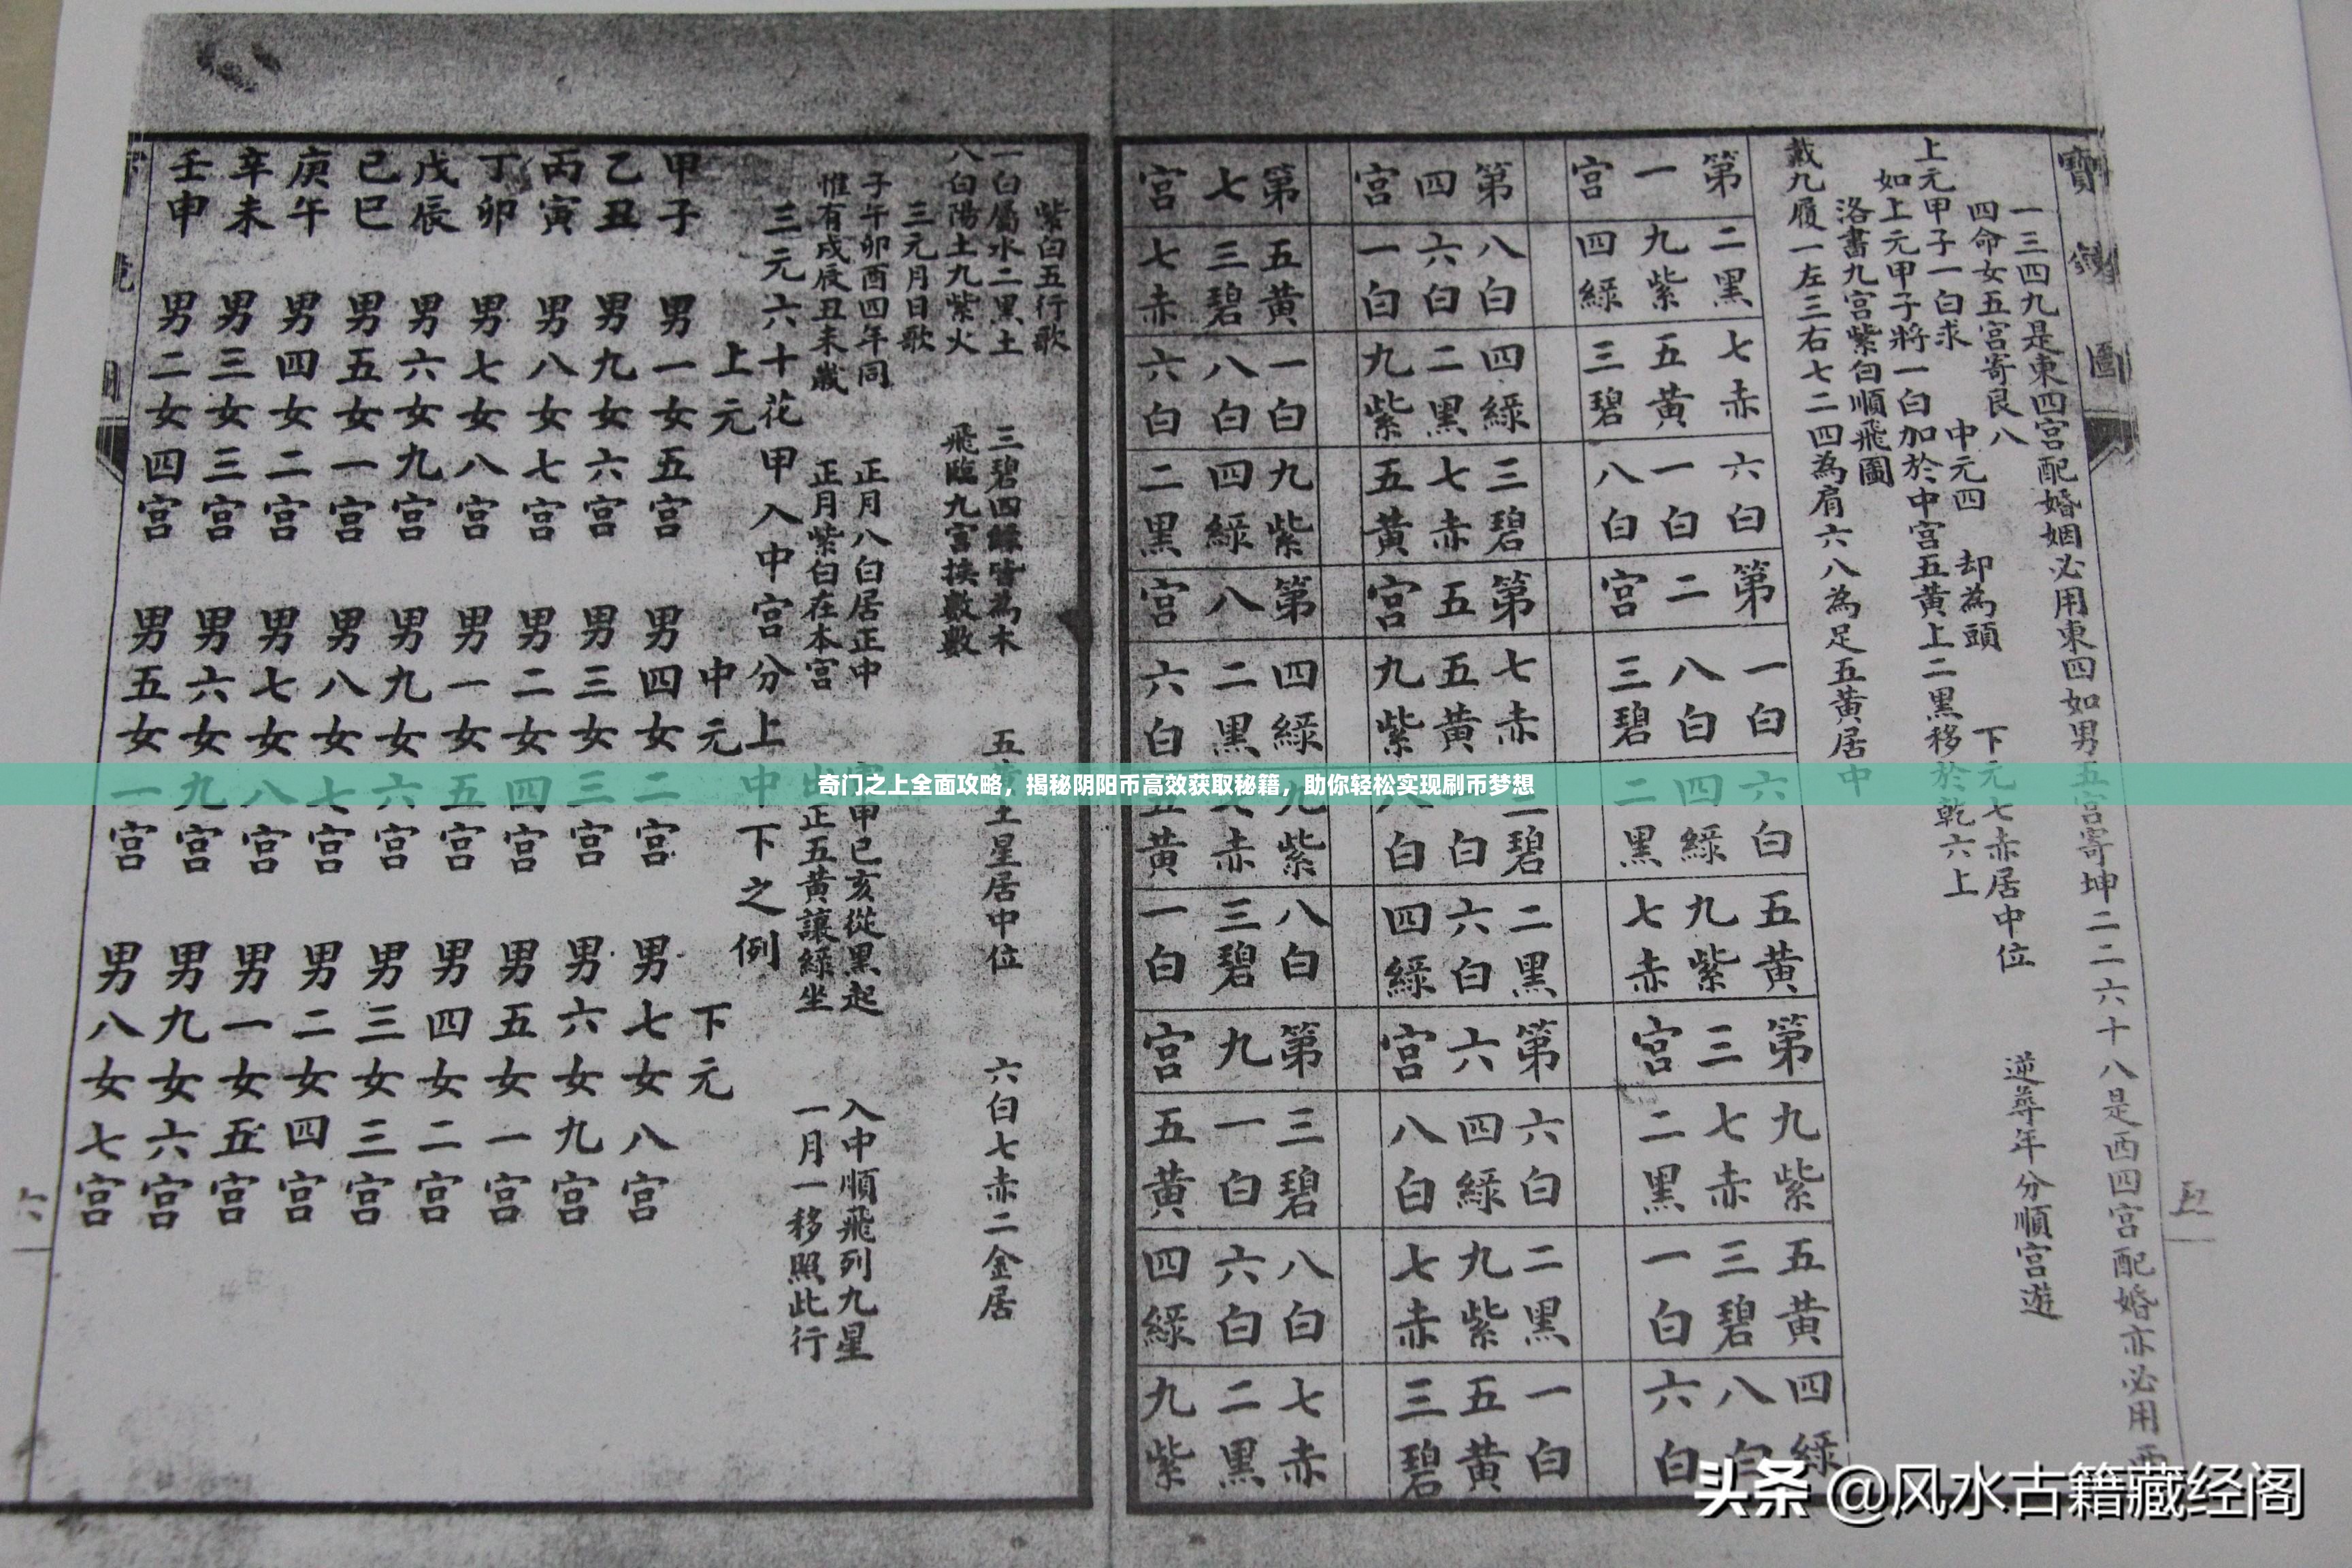 寶
圖
五
一三四九是東四宮配婚姻必用東四如男五宮寄坤二二六十八是西四宮配婚亦必用西
四命女五宮寄艮八
上元甲子一白求 中元四 却為頭 下元七赤居中位 逆尋年分順宮遊
如上元甲子將一白加於中宮五黃上二黑移於乾六上
洛書九宮紫白順飛圖
戴九履一左三右七二四為肩六八為足五黃居中
第一宮
二黑 九紫 四綠
七赤 五黃 三碧
六白 一白 八白
第二宮
一白 八白 三碧
六白 四綠 二黑
五黃 九紫 七赤
第三宮
九紫 七赤 二黑
五黃 三碧 一白
四綠 八白 六白
第四宮
八白 六白 一白
四綠 二黑 九紫
三碧 七赤 五黃
第五宮
七赤 五黃 九紫
三碧 一白 八白
二黑 六白 四綠
第六宮
六白 四綠 八白
二黑 九紫 七赤
一白 五黃 三碧
第七宮
五黃 三碧 七赤
一白 八白 六白
九紫 四綠 二黑
第八宮
四綠 二黑 六白
九紫 七赤 五黃
八白 三碧 一白
第九宮
三碧 一白 五黃
八白 六白 四綠
七赤 二黑 九紫
紫白五行歌
一白屬水二黑土 三碧四綠皆為木 五黃土星居中位 六白七赤二金居
八白陽土九紫火 飛臨九宮挨數數
三元月日歌
子午卯酉四年同 正月八白居正中 寅申巳亥從黑起 入中順飛列九星
惟有戌辰丑未歲 正月紫白在本宮 出正五黃讓綠坐 一月一移照此行
三元六十花甲入中宮分上中下之例
上元 中元 下元
甲子 男一女五宮 男四女二宮 男七女八宮
乙丑 男九女六宮 男三女三宮 男六女九宮
丙寅 男八女七宮 男二女四宮 男五女一宮
丁卯 男七女八宮 男一女五宮 男四女二宮
戊辰 男六女九宮 男九女六宮 男三女三宮
己巳 男五女一宮 男八女七宮 男二女四宮
庚午 男四女二宮 男七女八宮 男一女五宮
辛未 男三女三宮 男六女九宮 男九女六宮
壬申 男二女四宮 男五女一宮 男八女七宮
奇门之上全面攻略，揭秘阴阳币高效获取秘籍，助你轻松实现刷币梦想
头条 @风水古籍藏经阁